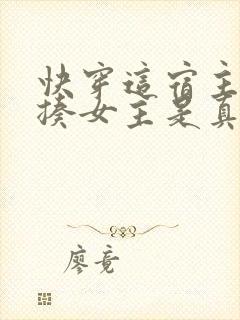 快穿這宿主
揍女主是真
廖竟